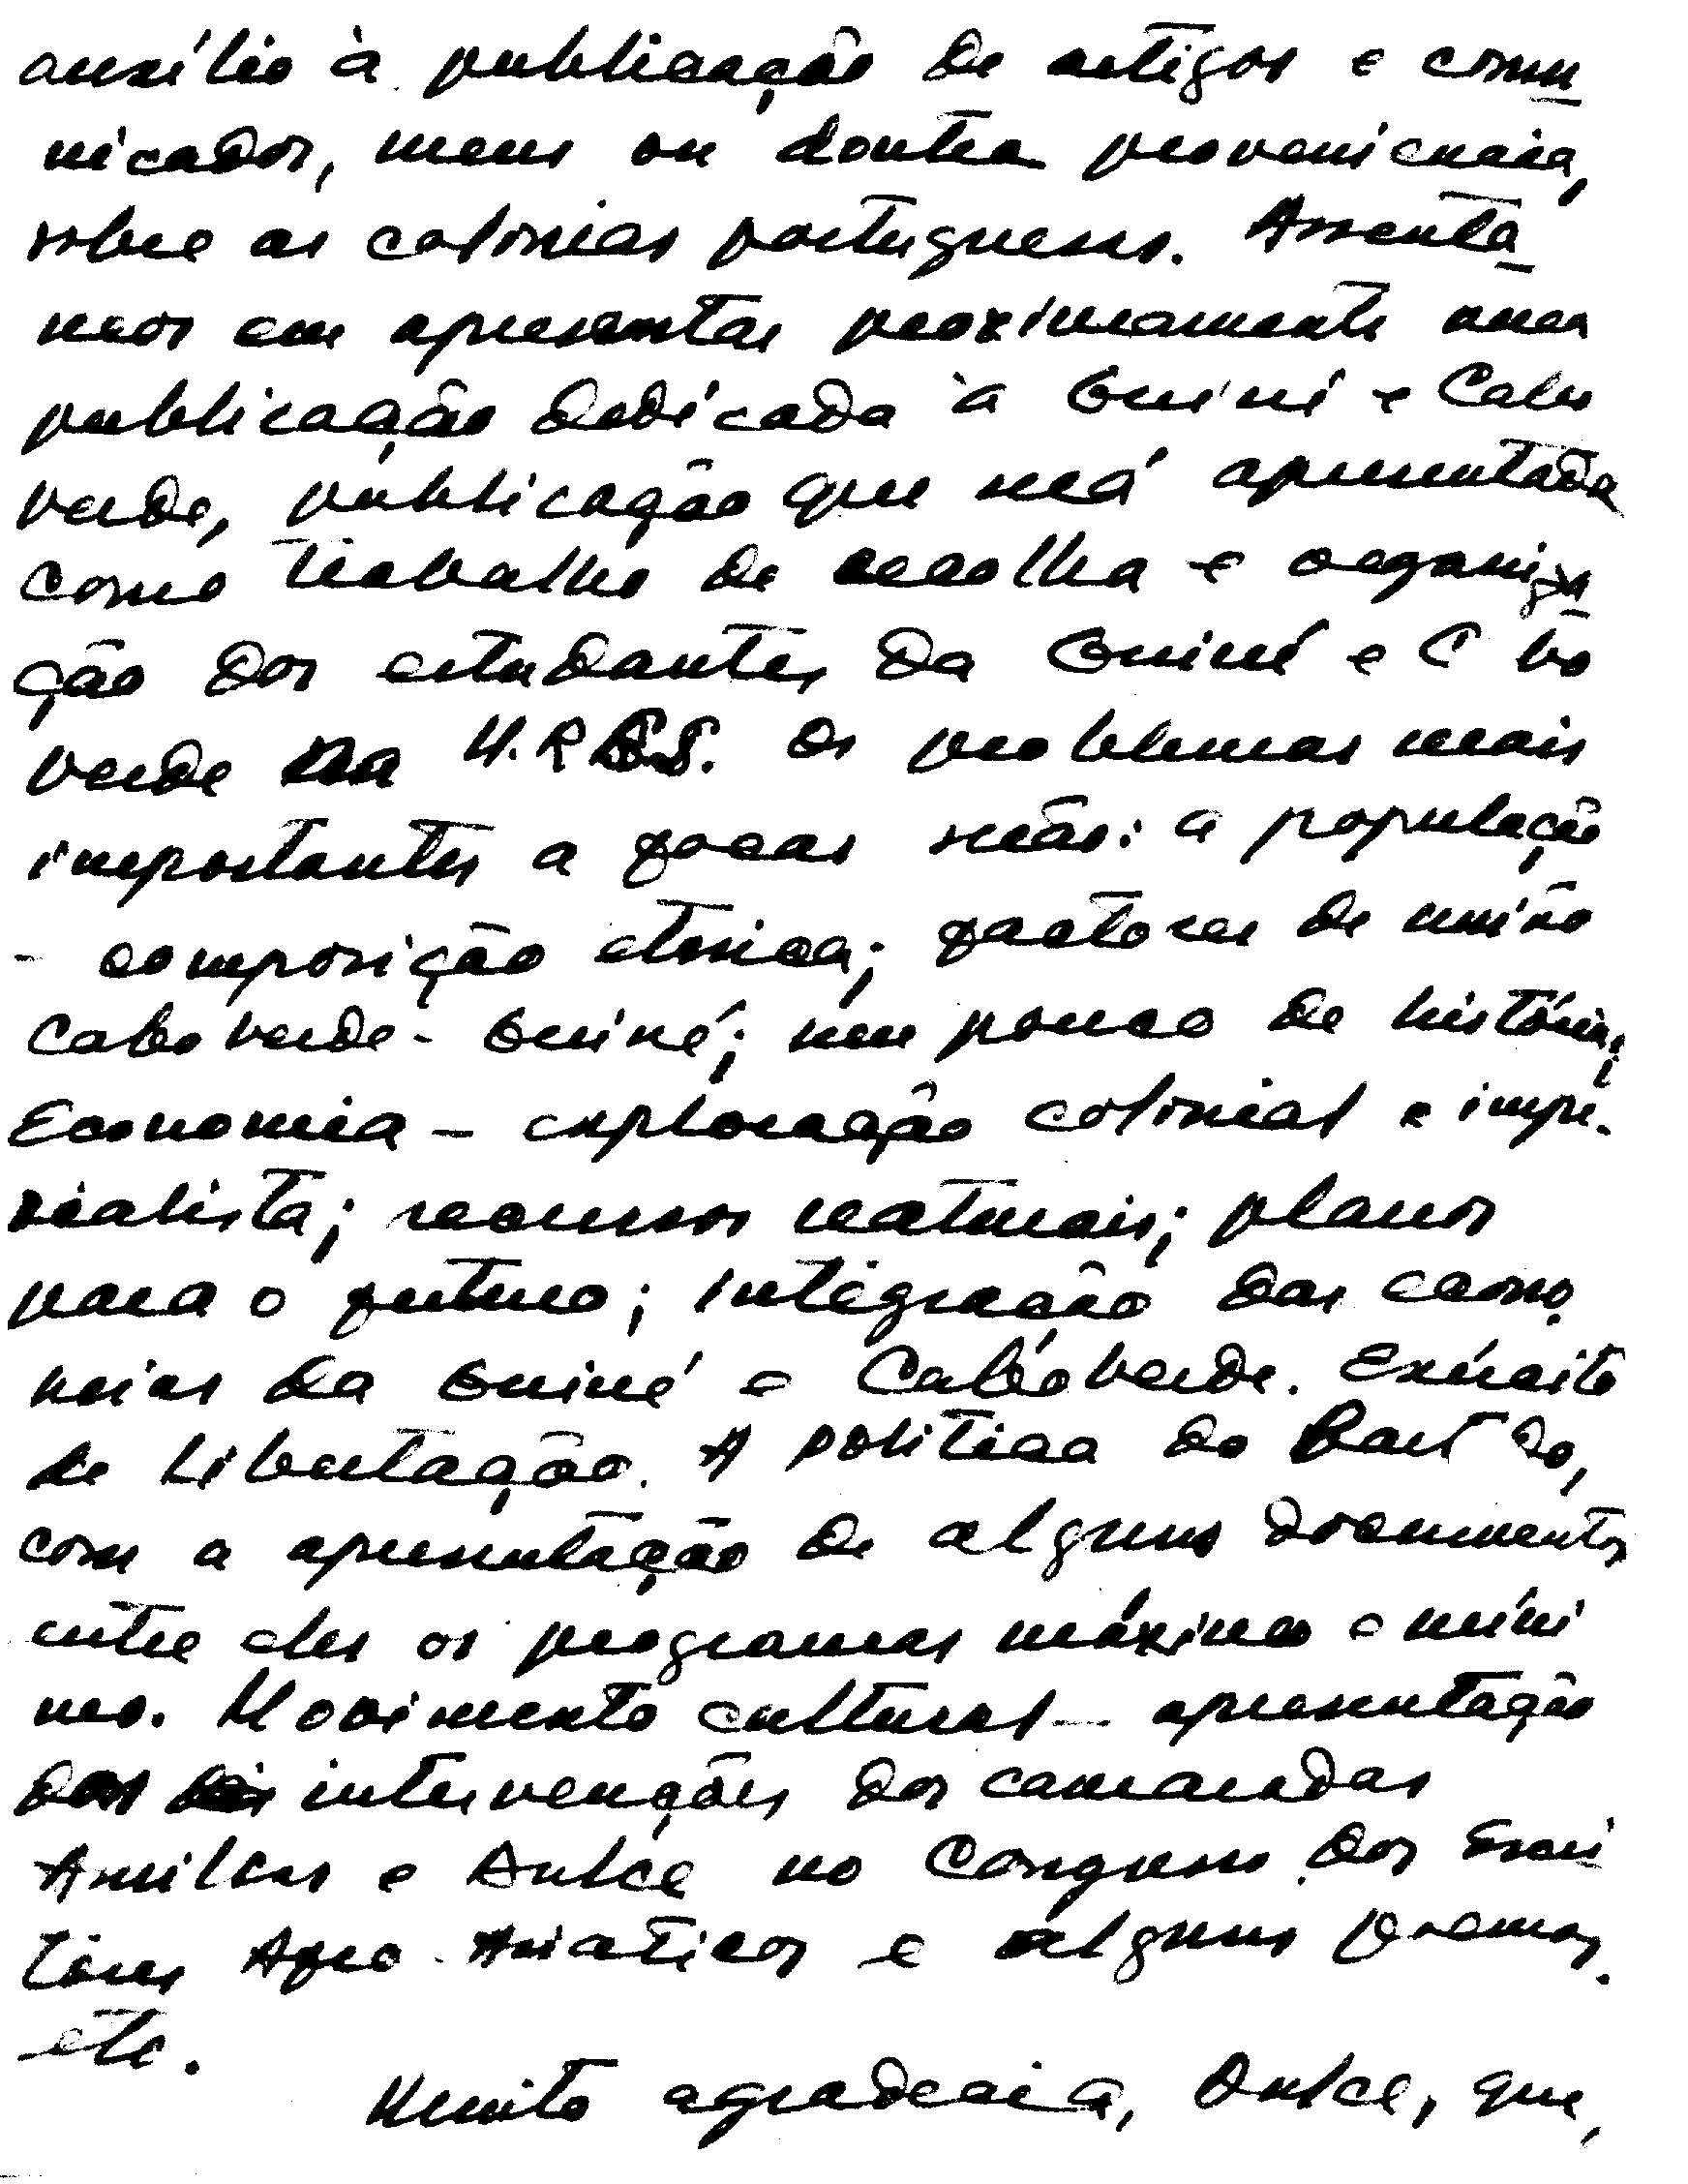 auxílio à publicação de artigos e comu
nicados, meus ou doutra proveniencia,
sobre as colonias portuguesas. Assentá
mos em apresentar proximamente uma
publicação dedicada à Guiné e Cabo
verde, publicação que será apresentada
como trabalho de recolha e organiza
ção dos estudantes da Guiné e C bo
verde na U.R.S.S. Os problemas mais
importantes a focar serão: a população
- composição etnica; factores de união
Cabo verde - Guiné; um pouco de história;
Economia - exploração colonial e impe-
rialista; recursos naturais; planos
para o futuro; integração das econo-
mias da Guiné e Cabo verde. Exército
de Libertação. A politica do Part do,
com a apresentação de alguns documentos
entre eles os programas máximo e míni
mo. Movimento cultural - apresentação
das intervenções dos camaradas
Amilcar e Dulce no Congresso dos Escri
tores Afro-Asiaticos e alguns poemas.
etc.
Muito agradecia, Dulce, que,